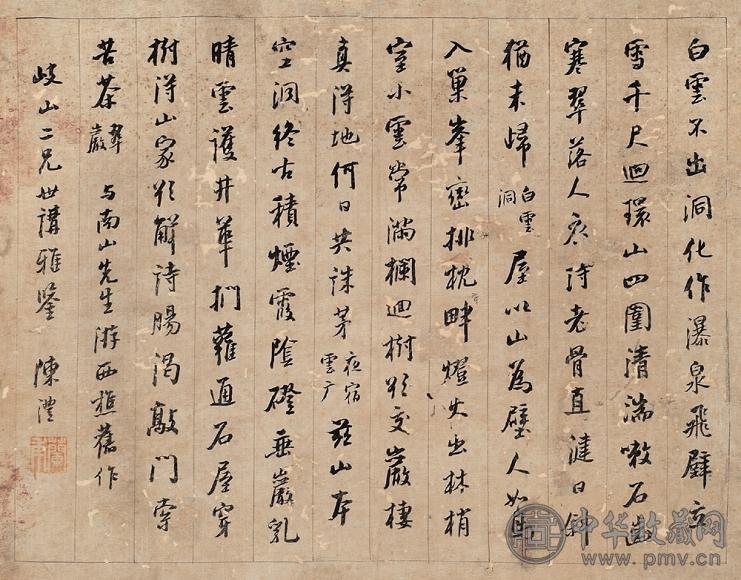 白雲不出洞化作瀑泉飛壁立
雪千尺迴環山四圍清湍漱石齒
寒翠落人衣詩老骨真健日斜
猶未歸 白雲洞 屋以山為壁人如鳥
入巢峯巒排枕畔燈火出林梢
室小雲常滿欄迴樹欲交巖棲
真得地何日共誅茅 夜宿雲广 茲山本
空洞終古積煙霞陰磴垂巖乳
晴雲護井華捫蘿通石屋穿
樹得山家欲解詩腸渴敲門索
苦茶 翠巖 与南山先生游西樵舊作
岐山二兄世講雅鑒 陳澧
中华收藏网
www.pmv.cn